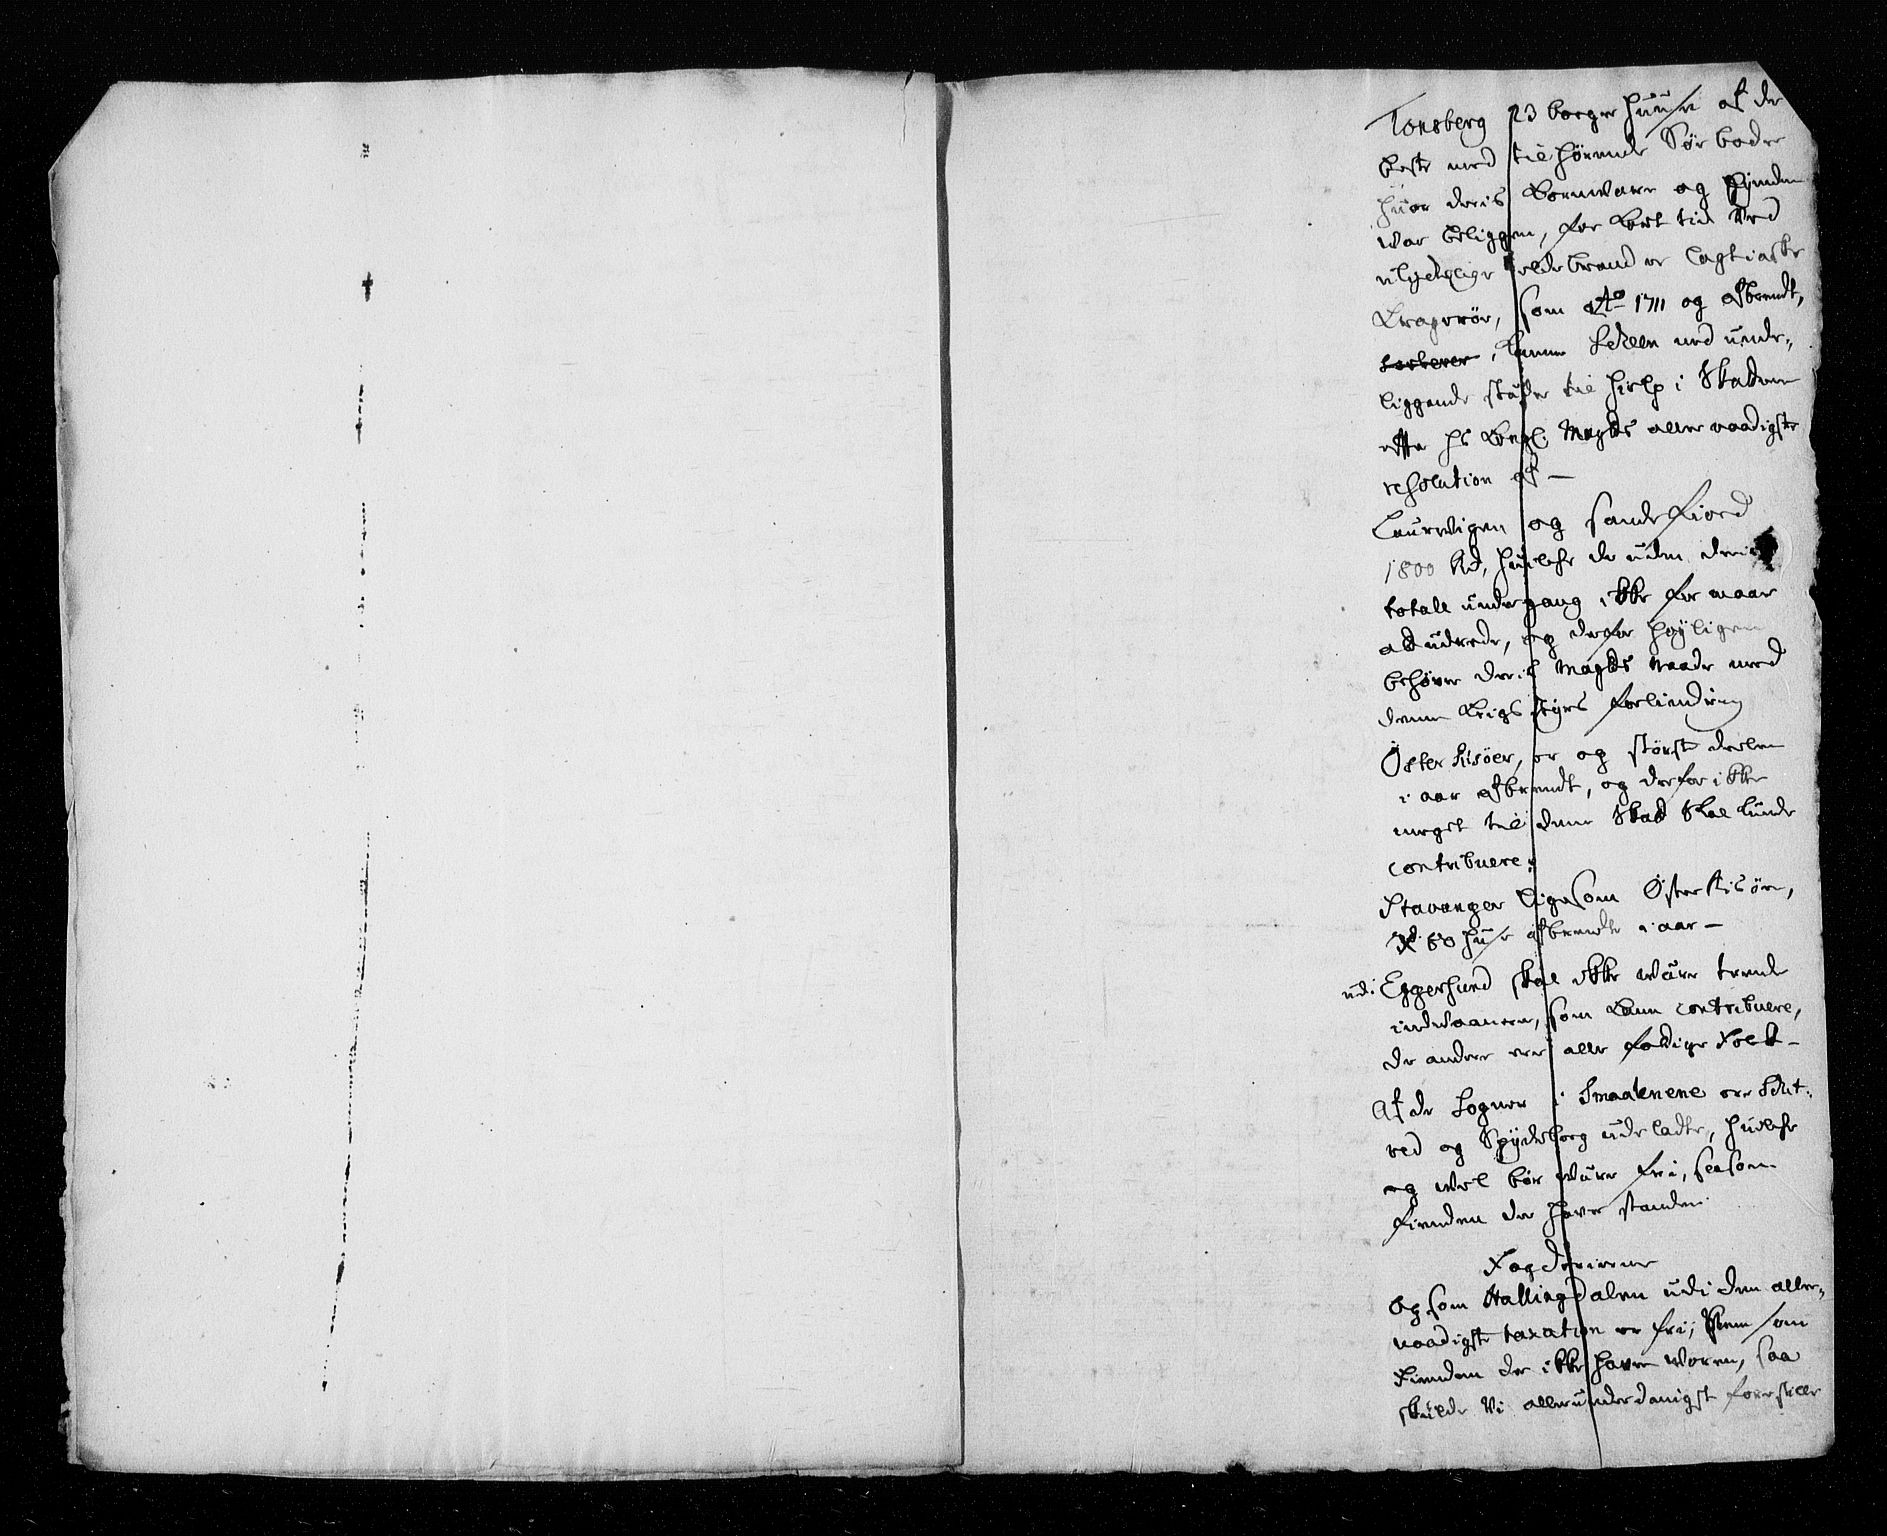 Tonsberg 23 borger huuse af de
beste med tilhørende Søe boder
huor deris Kornvare og
war beliggen, for kort tid ved
ulychelige ildebrand er lagt i aske
Krageröe, som Ao 1711 og afbrendt,
kunne Scheen med under„
liggende stæder til hielp i Skatten
efter hs Kongl. Maytts allernaadigste
resolution af —
Laurwigen og Sandefiord
1800 Rd, huilche de uden deris
totale undergang ikke formaar
at udrede, og derfor høyligen
behøver deris Maytts Naade med
denne Krigs Styrs forlindring
Öster Risöer, er og störste deelen
i aar afbrendt, og derfor ikke
meget til denne Skat skal kunde
contribuere.
Stavanger ligesom Øster Risöer,
80 huse afbrendte i aar —
udi Eggersund skal ikke være trende
indvaanere, som kand contribuere,
de andre ere alle fattige Folck —
Af de Sogner i Smaalenene ere Skit„
ved og Spydeborg udeladte, huilche
og vel bør være fri, saasom
fienden der haver standen.
Fogderierne
Og som Hallingdalen udi den aller„
naadigste taxation er fri, som
Fienden der ikke haver woren, saa
skulde Vi allerunderdanigst forestille